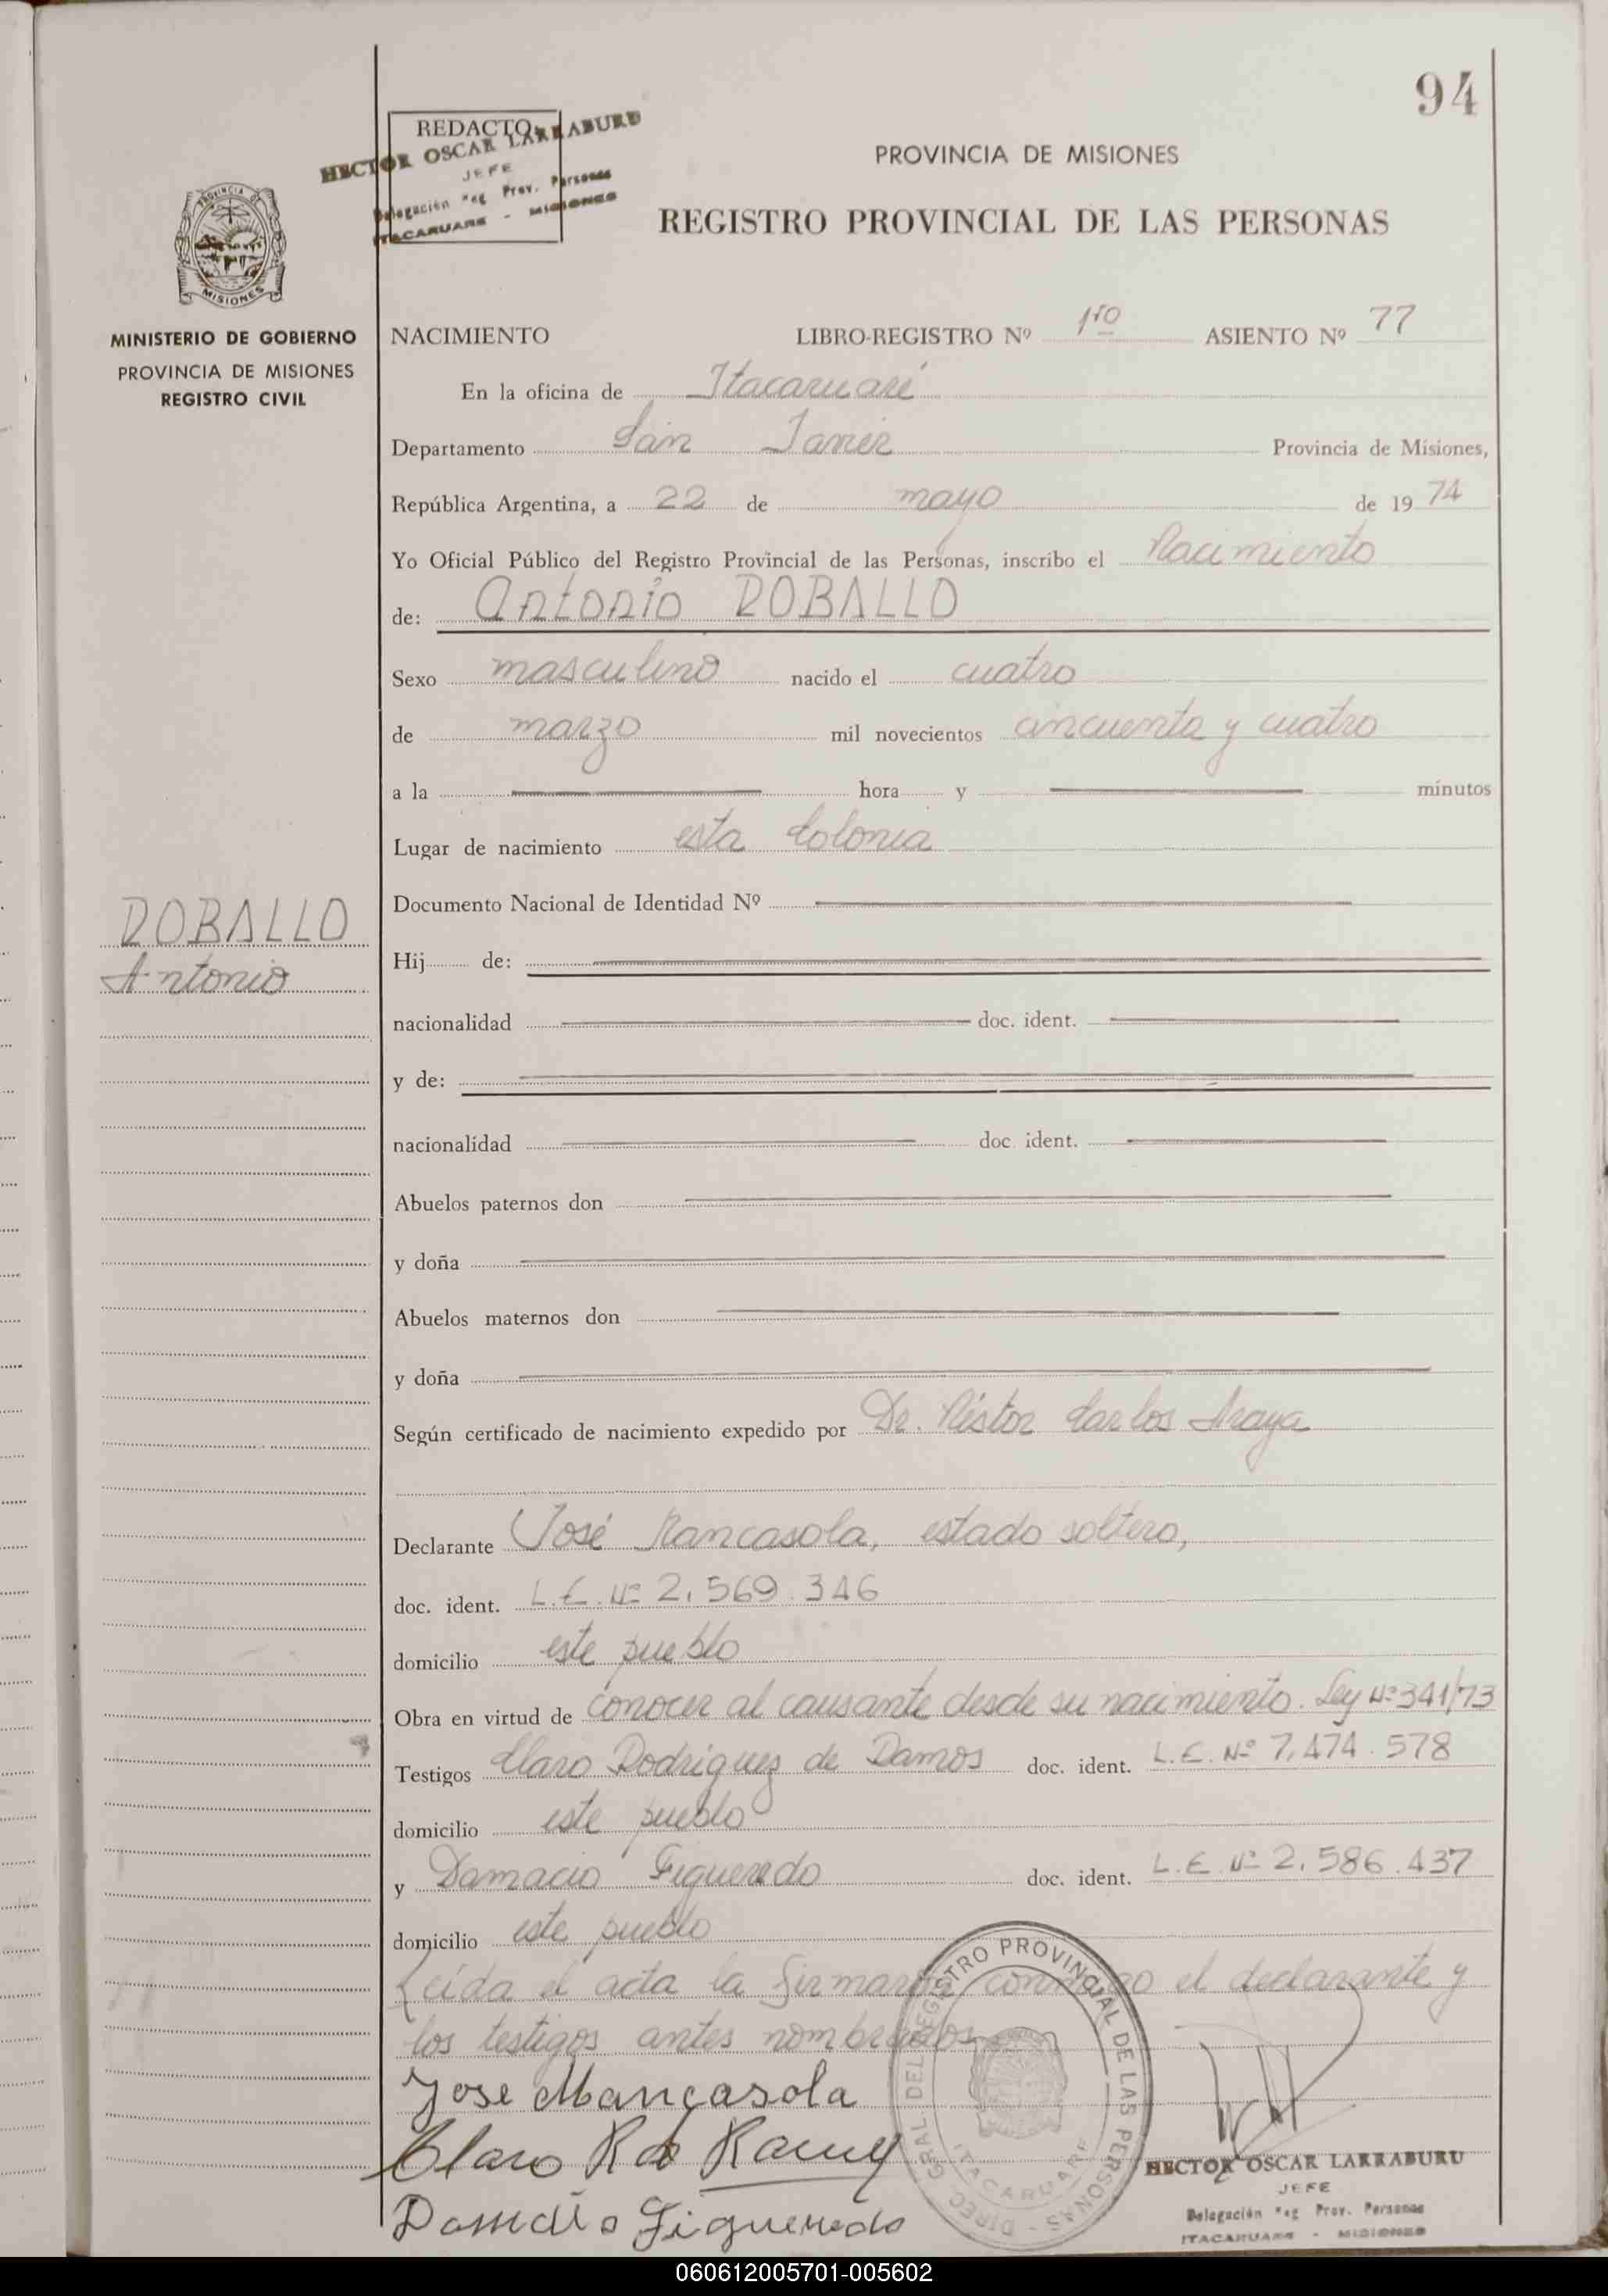 94
REDACTO
HECTOR OSCAR LARRABURU
JEFE
Delegación Reg Prov. Personas
ITACARUARE - MISIONES
PROVINCIA DE MISIONES
REGISTRO PROVINCIAL DE LAS PERSONAS
PROVINCIA DE
MISIONES
MINISTERIO DE GOBIERNO
PROVINCIA DE MISIONES
REGISTRO CIVIL
NACIMIENTO LIBRO-REGISTRO Nº 1ro ASIENTO Nº 77
En la oficina de Itacaruaré
Departamento San Javier Provincia de Misiones,
República Argentina, a 22 de mayo de 1974
Yo Oficial Público del Registro Provincial de las Personas, inscribo el Nacimiento
de: Antonio ROBALLO
Sexo masculino nacido el cuatro
de marzo mil novecientos cincuenta y cuatro
a la hora y minutos
Lugar de nacimiento esta Colonia
Documento Nacional de Identidad Nº
ROBALLO
Antonio
Hij de:
nacionalidad doc. ident.
y de:
nacionalidad doc ident.
Abuelos paternos don
y doña
Abuelos maternos don
y doña
Según certificado de nacimiento expedido por Dr. Néstor Carlos Araya
Declarante José Mancasola, estado soltero,
doc. ident. L.E. Nº 2.569.346
domicilio este pueblo
Obra en virtud de conocer al causante desde su nacimiento. Ley Nº 341/73
Testigos Claro Rodriguez de Ramos doc. ident. L.E. Nº 7.474.578
domicilio este pueblo
y Damacio Figueredo doc. ident. L.E. Nº 2.586.437
domicilio este pueblo
Leída el acta la firmaron conmigo el declarante y
los testigos antes nombrados
Jose Mancasola
Claro R de
Figueredo
DIREC. GRAL DEL REGISTRO PROVINCIAL DE LAS PERSONAS
ITACARUARE
HECTOR OSCAR LARRABURU
JEFE
Delegación Reg Prov. Personas
ITACARUARE - MISIONES
060612005701-005602